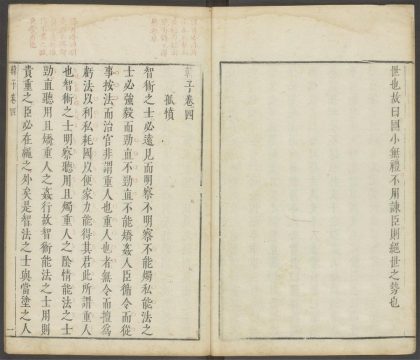 世也故曰國小無禮不用諫臣則絕世之勢也
韓子卷四
孤憤
智術之士必遠見而明察不明察不能燭私能法之
士必強毅而勁直不勁直不能矯姦人臣循令而從
事按法而治官非謂重人也重人也者無令而擅爲
虧法以利私耗國以便家力能得其君此所謂重人
也智術之士明察聽用且燭重人之陰情能法之士
勁直聽用且矯重人之姦行故智術能法之士用則
貴重之臣必在繩之外矣是智法之士與當塗之人
韓子卷四
一